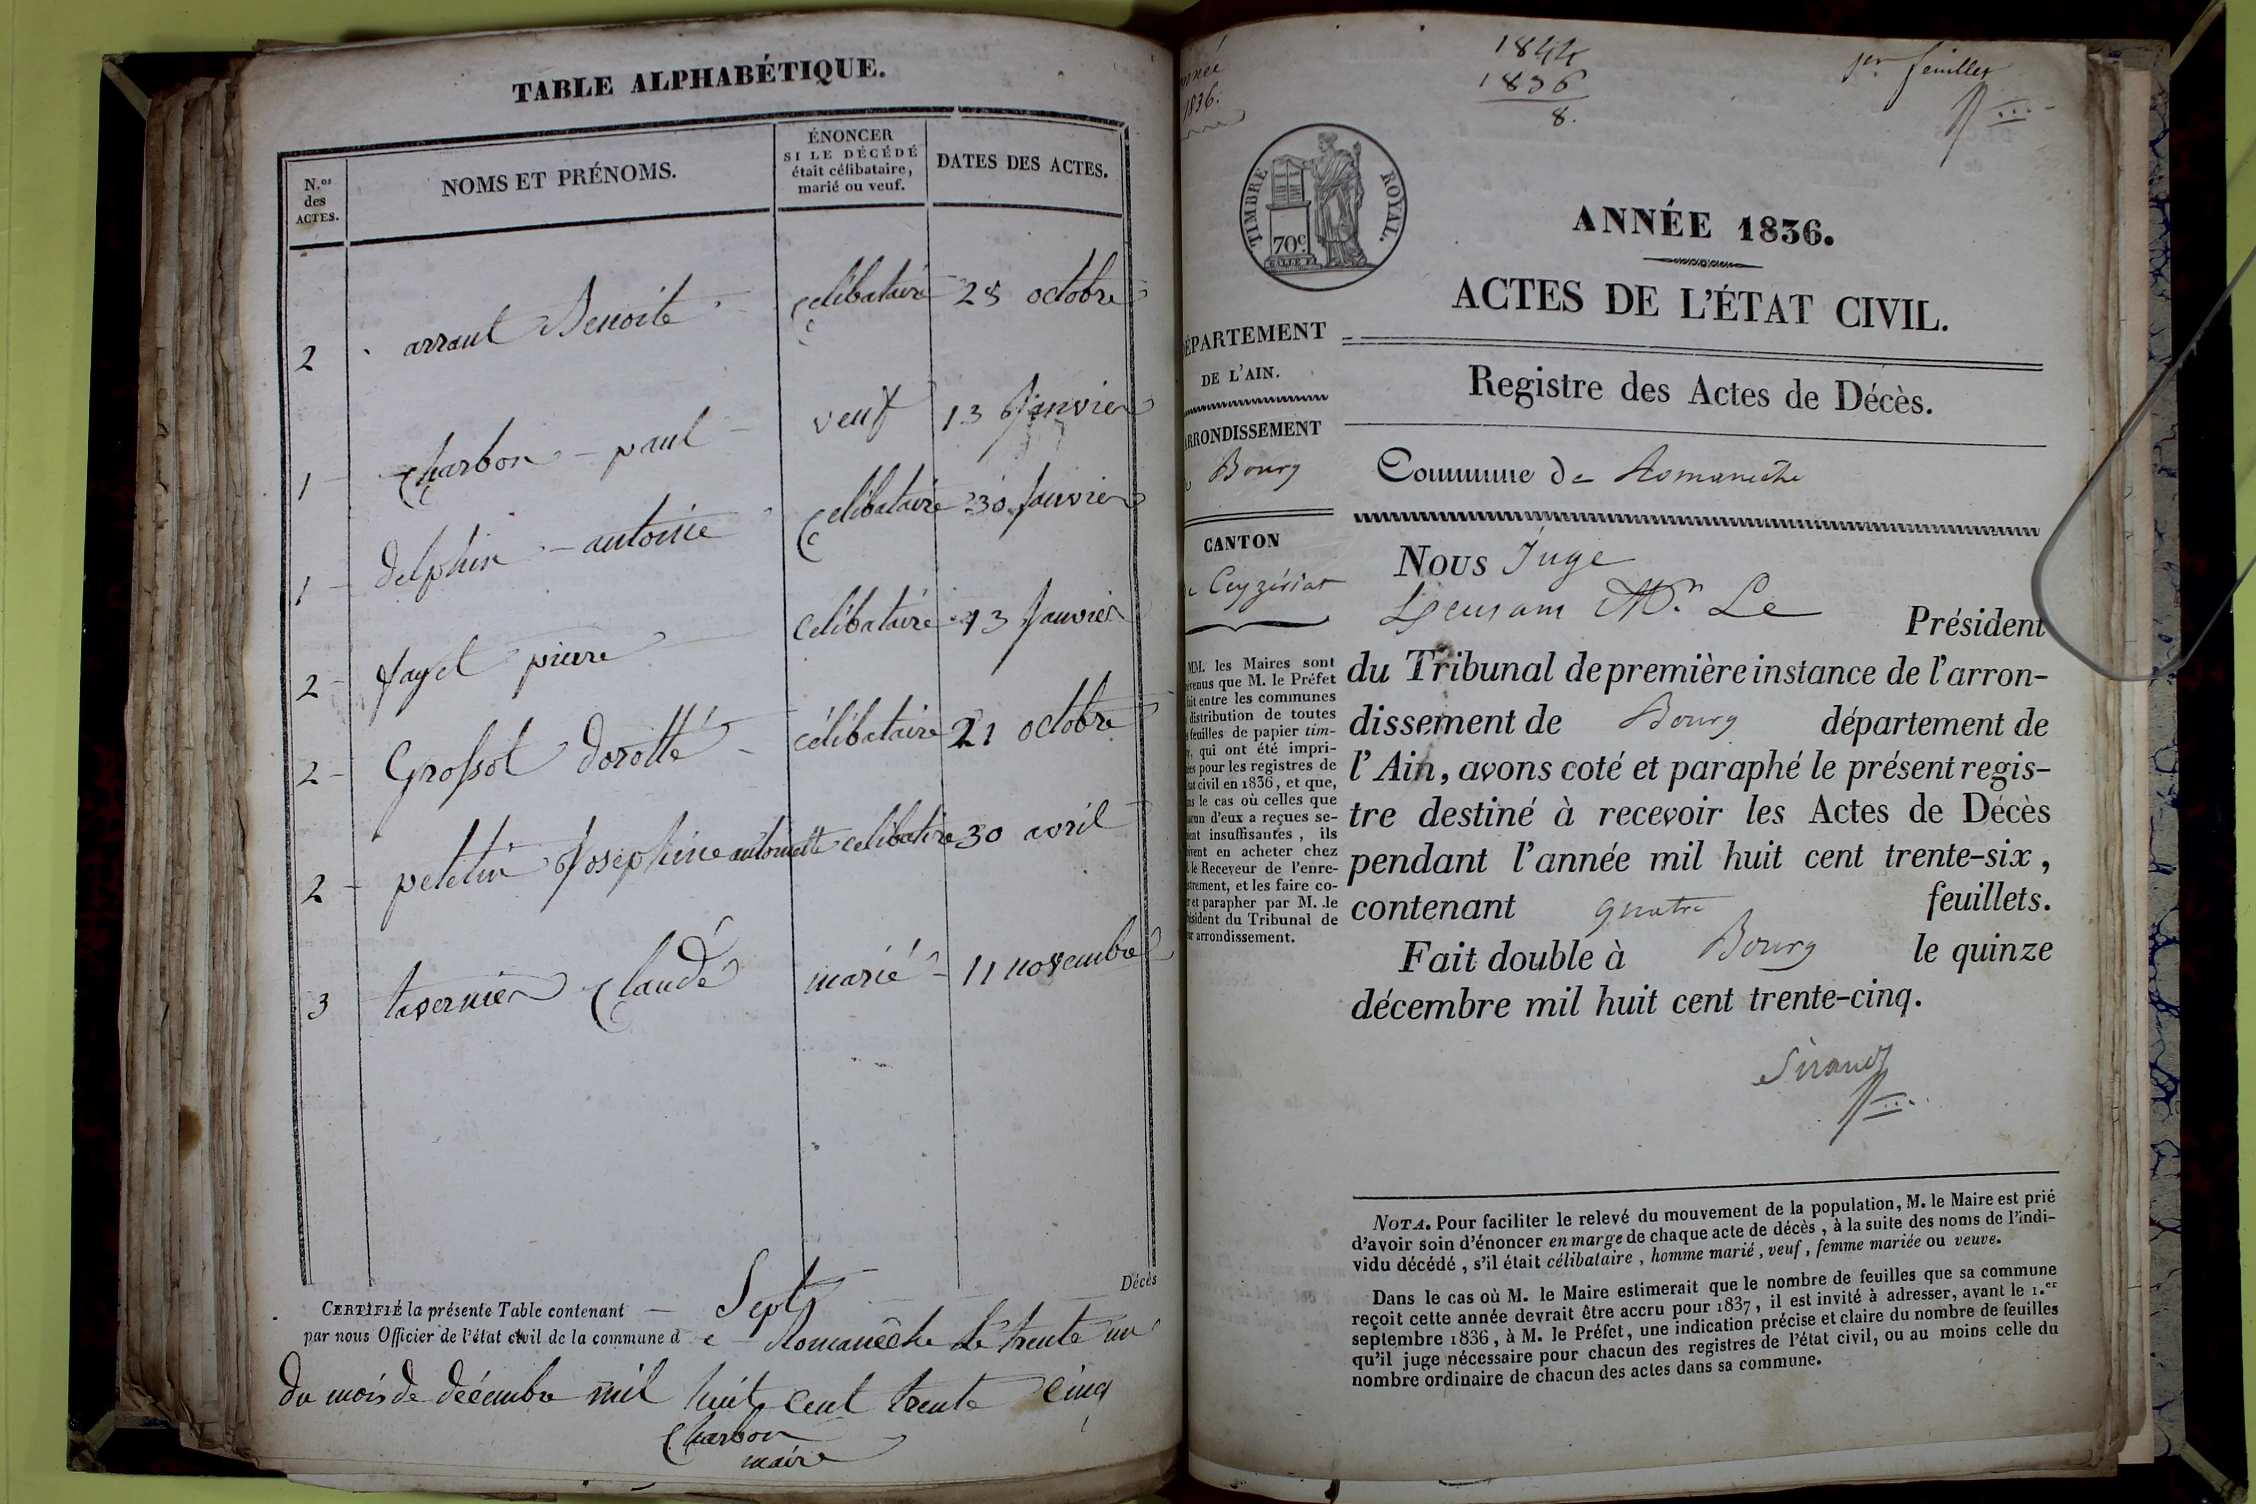 TABLE ALPHABÉTIQUE.
N.os des ACTES.
NOMS ET PRÉNOMS.
ÉNONCER
SI LE DÉCÉDÉ
était célibataire,
marié ou veuf.
DATES DES ACTES.
2 arraul Benoite Celibataire 28 octobre
1 Charbon - paul - veuf 13 Janvier
1 delphin - antoine Celibataire 30 Janvier
2 fayel pierre celibataire 13 Janvier
2 Grossot dorotté - célibataire 21 octobre
2 petetin Josephine antoinette celibatire 30 avril
3 tavernier Claude marié - 11 novembre
CERTIFIÉ la présente Table contenant Sept Décès
par nous Officier de l'état civil de la commune de Romanêche le trente un
du mois de décembre mil huit cent trente cinq
Charbon
maire
1836.
1844
1836
8.
1er feuillet
TIMBRE ROYAL.
70c
ANNÉE 1836.
ACTES DE L'ÉTAT CIVIL.
DÉPARTEMENT
DE L'AIN.
ARRONDISSEMENT
Bourg
CANTON
Ceyzériat
MM. les Maires sont
que M. le Préfet
entre les communes
distribution de toutes
feuilles de papier tim-
qui ont été impri-
pour les registres de
civil en 1836, et que,
le cas où celles que
d'eux a reçues se-
insuffisantes, ils
en acheter chez
le Receveur de l'enre-
et les faire co-
et parapher par M. le
du Tribunal de
arrondissement.
Registre des Actes de Décès.
Commune de Romanèche
Nous Juge
Mr. Le Président
du Tribunal de première instance de l'arron-
dissement de Bourg département de
l'Ain, avons coté et paraphé le présent regis-
tre destiné à recevoir les Actes de Décès
pendant l'année mil huit cent trente-six,
contenant quatre feuillets.
Fait double à Bourg le quinze
décembre mil huit cent trente-cinq.
Sirand
NOTA. Pour faciliter le relevé du mouvement de la population, M. le Maire est prié
d'avoir soin d'énoncer en marge de chaque acte de décès, à la suite des noms de l'indi-
vidu décédé, s'il était célibataire, homme marié, veuf, femme mariée ou veuve.
Dans le cas où M. le Maire estimerait que le nombre de feuilles que sa commune
reçoit cette année devrait être accru pour 1837, il est invité à adresser, avant le 1.er
septembre 1836, à M. le Préfet, une indication précise et claire du nombre de feuilles
qu'il juge nécessaire pour chacun des registres de l'état civil, ou au moins celle du
nombre ordinaire de chacun des actes dans sa commune.